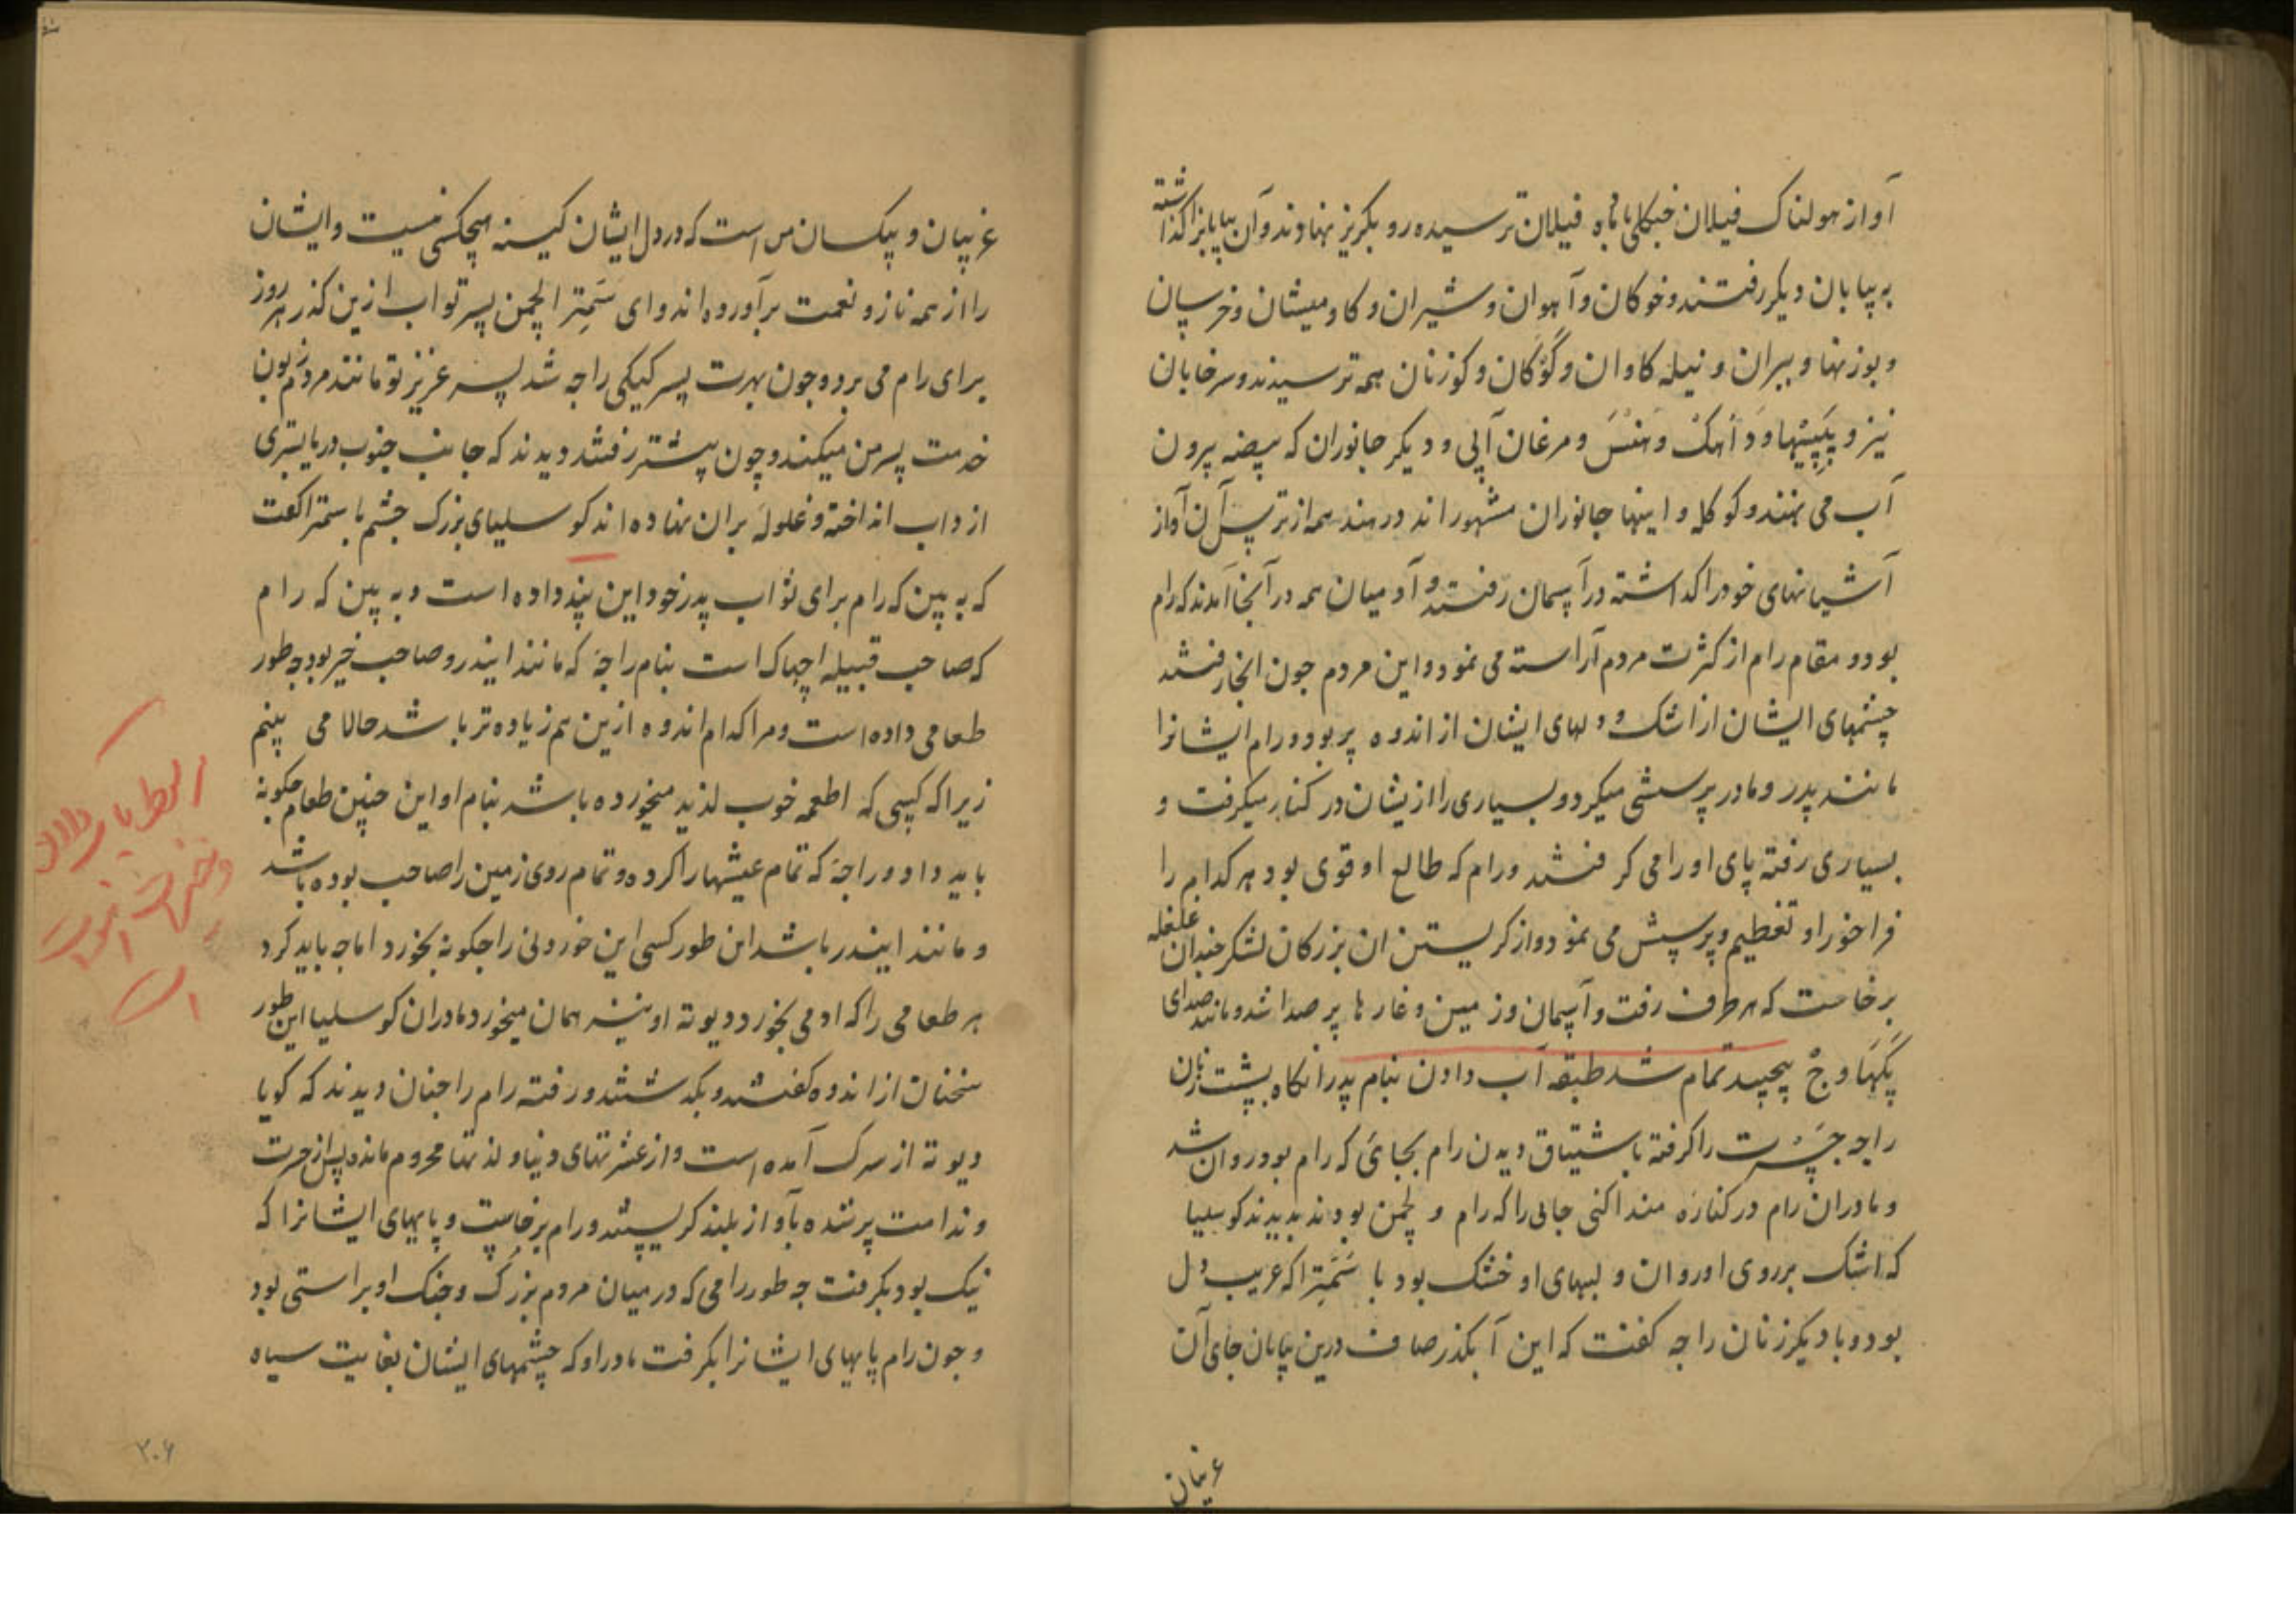 آواز هولناک فیلان جنکلی با ماده فیلان ترسیده رو بکریز نهادند و آن بیابانرا کذاشته
به بیابان دیکر رفتند و خوکان و آهوان و شیران و کاومیشان و خرسان
و یوزنها و ببران و نیله کاوان و کوزنان همه ترسیدند و سرخابان
نیز و پپیهها و داهک و هنس و مرغان آبی و دیکر جانوران که بیضه بیرون
آب می نهند و کوکله و اینها جانوران مشهوراند در هند همه از ترس آن آواز
آشیانهای خود را کذاشته در آسمان رفتند و آدمیان همه در آنجا آمدند که رام
بود و مقام رام از کثرت مردم آراسته می نمود و این مردم چون انجا رفتند
چشمهای ایشان از اشک و دلهای ایشان از اندوه پر بود و رام ایشانرا
مانند پدر و مادر پرسشی میکرد و بسیاری را ازیشان در کنار میکرفت و
بسیاری رفته پای او را می کرفتند و رام که طالع او قوی بود هر کدام را
فراخور او تعظیم و پرسش می نمود و از کریستن ان بزرکان لشکر چندان غلغله
برخاست که هر طرف رفت و آسمان و زمین و غارها پر صدا شد و مانند صدای
پکهاوج پیچید تمام شد طبقه آب دادن بنام پدر انکاه بشت زنان
راجه جسرت را کرفته باشتیاق دیدن رام بجائی که رام بود روان شد
و مادران رام در کناره منداکنی جایی را که رام و لچمن بودند بدیدند کوسلیا
که اشک بر روی او روان و لبهای او خشک بود با سمترا که غریب دل
بود و با دیکر زنان راجه کفت که این آبکذر صاف درین بیابان جای آن
غریبان
غریبان و بیکسان من است که در دل ایشان کینه هیچکسی نیست و ایشان
را از همه ناز و نعمت برآورده اند و ای سمترا لچمن پسر تو اب ازین کذر هر روز
برای رام می برد و چون بهرت پسر کیکی راجه شد پسر عزیز تو مانند مردم زبون
خدمت پسر من میکند و چون پیشتر رفتند دیدند که جانب جنوب دریا بستری
از داب انداخته و غلوله بران نهاده اند کوسلیای بزرک چشم با سمترا کفت
که به بین که رام برای ثواب پدر خود این پند داده است و به بین که رام
که صاحب قبیله اچهاک است بنام راجه که مانند ایندر و صاحب خیر بود چه طور
طعامی داده است و مرا کدام اندوه ازین هم زیاده تر باشد حالا می بینم
زیرا که کسی که اطعمه خوب لذیذ میخورده باشد بنام او این چنین طعام چکونه
باید داد و راجه که تمام عیشها را کرده و تمام روی زمین را صاحب بوده باشد
و مانند ایندر باشد این طور کسی این خوردنی را چکونه بخورد اما چه باید کرد
هر طعامی را که ادمی بخورد دیوته او نیز همان میخورد مادران کوسلیا این طور
سخنان از اندوه کفتند و بکذشتند و رفته رام را چنان دیدند که کویا
دیوته از سرک آمده است و از عشرتهای دنیا و لذتها محروم مانده پس از حسرت
و ندامت پر شده بآواز بلند کریستند و رام برخاست و پایهای ایشانرا که
نیک بود بکرفت چه طور رامی که در میان مردم بزرک و جنک او براستی بود
و چون رام پایهای ایشانرا بکرفت مادر او که چشمهای ایشان بغایت سیاه
۲۰۶